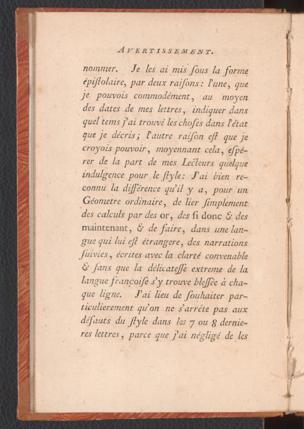 AVERTISSEMENT.
nommer. Je les ai mis ſous la forme
épiſtolaire, par deux raiſons: l'une, que
je pouvois commodément, au moyen
des dates de mes lettres, indiquer dans
quel tems j'ai trouvé les choſes dans l'état
que je décris; l'autre raiſon eſt que je
croyois pouvoir, moyennant cela, eſpé-
rer de la part de mes Lecteurs quelque
indulgence pour le ſtyle: J'ai bien re-
connu la différence qu'il y a, pour un
Géometre ordinaire, de lier ſimplement
des calculs par des or, des ſi donc & des
maintenant, & de faire, dans une lan-
gue qui lui eſt étrangere, des narrations
ſuivies, écrites avec la clarté convenable
& ſans que la délicateſſe extreme de la
langue françoiſe s'y trouve bleſſée à cha-
que ligne. J'ai lieu de ſouhaiter par-
ticulierement qu'on ne s'arrête pas aux
défauts du ſtyle dans les 7 ou 8 dernie-
res lettres, parce que j'ai négligé de les